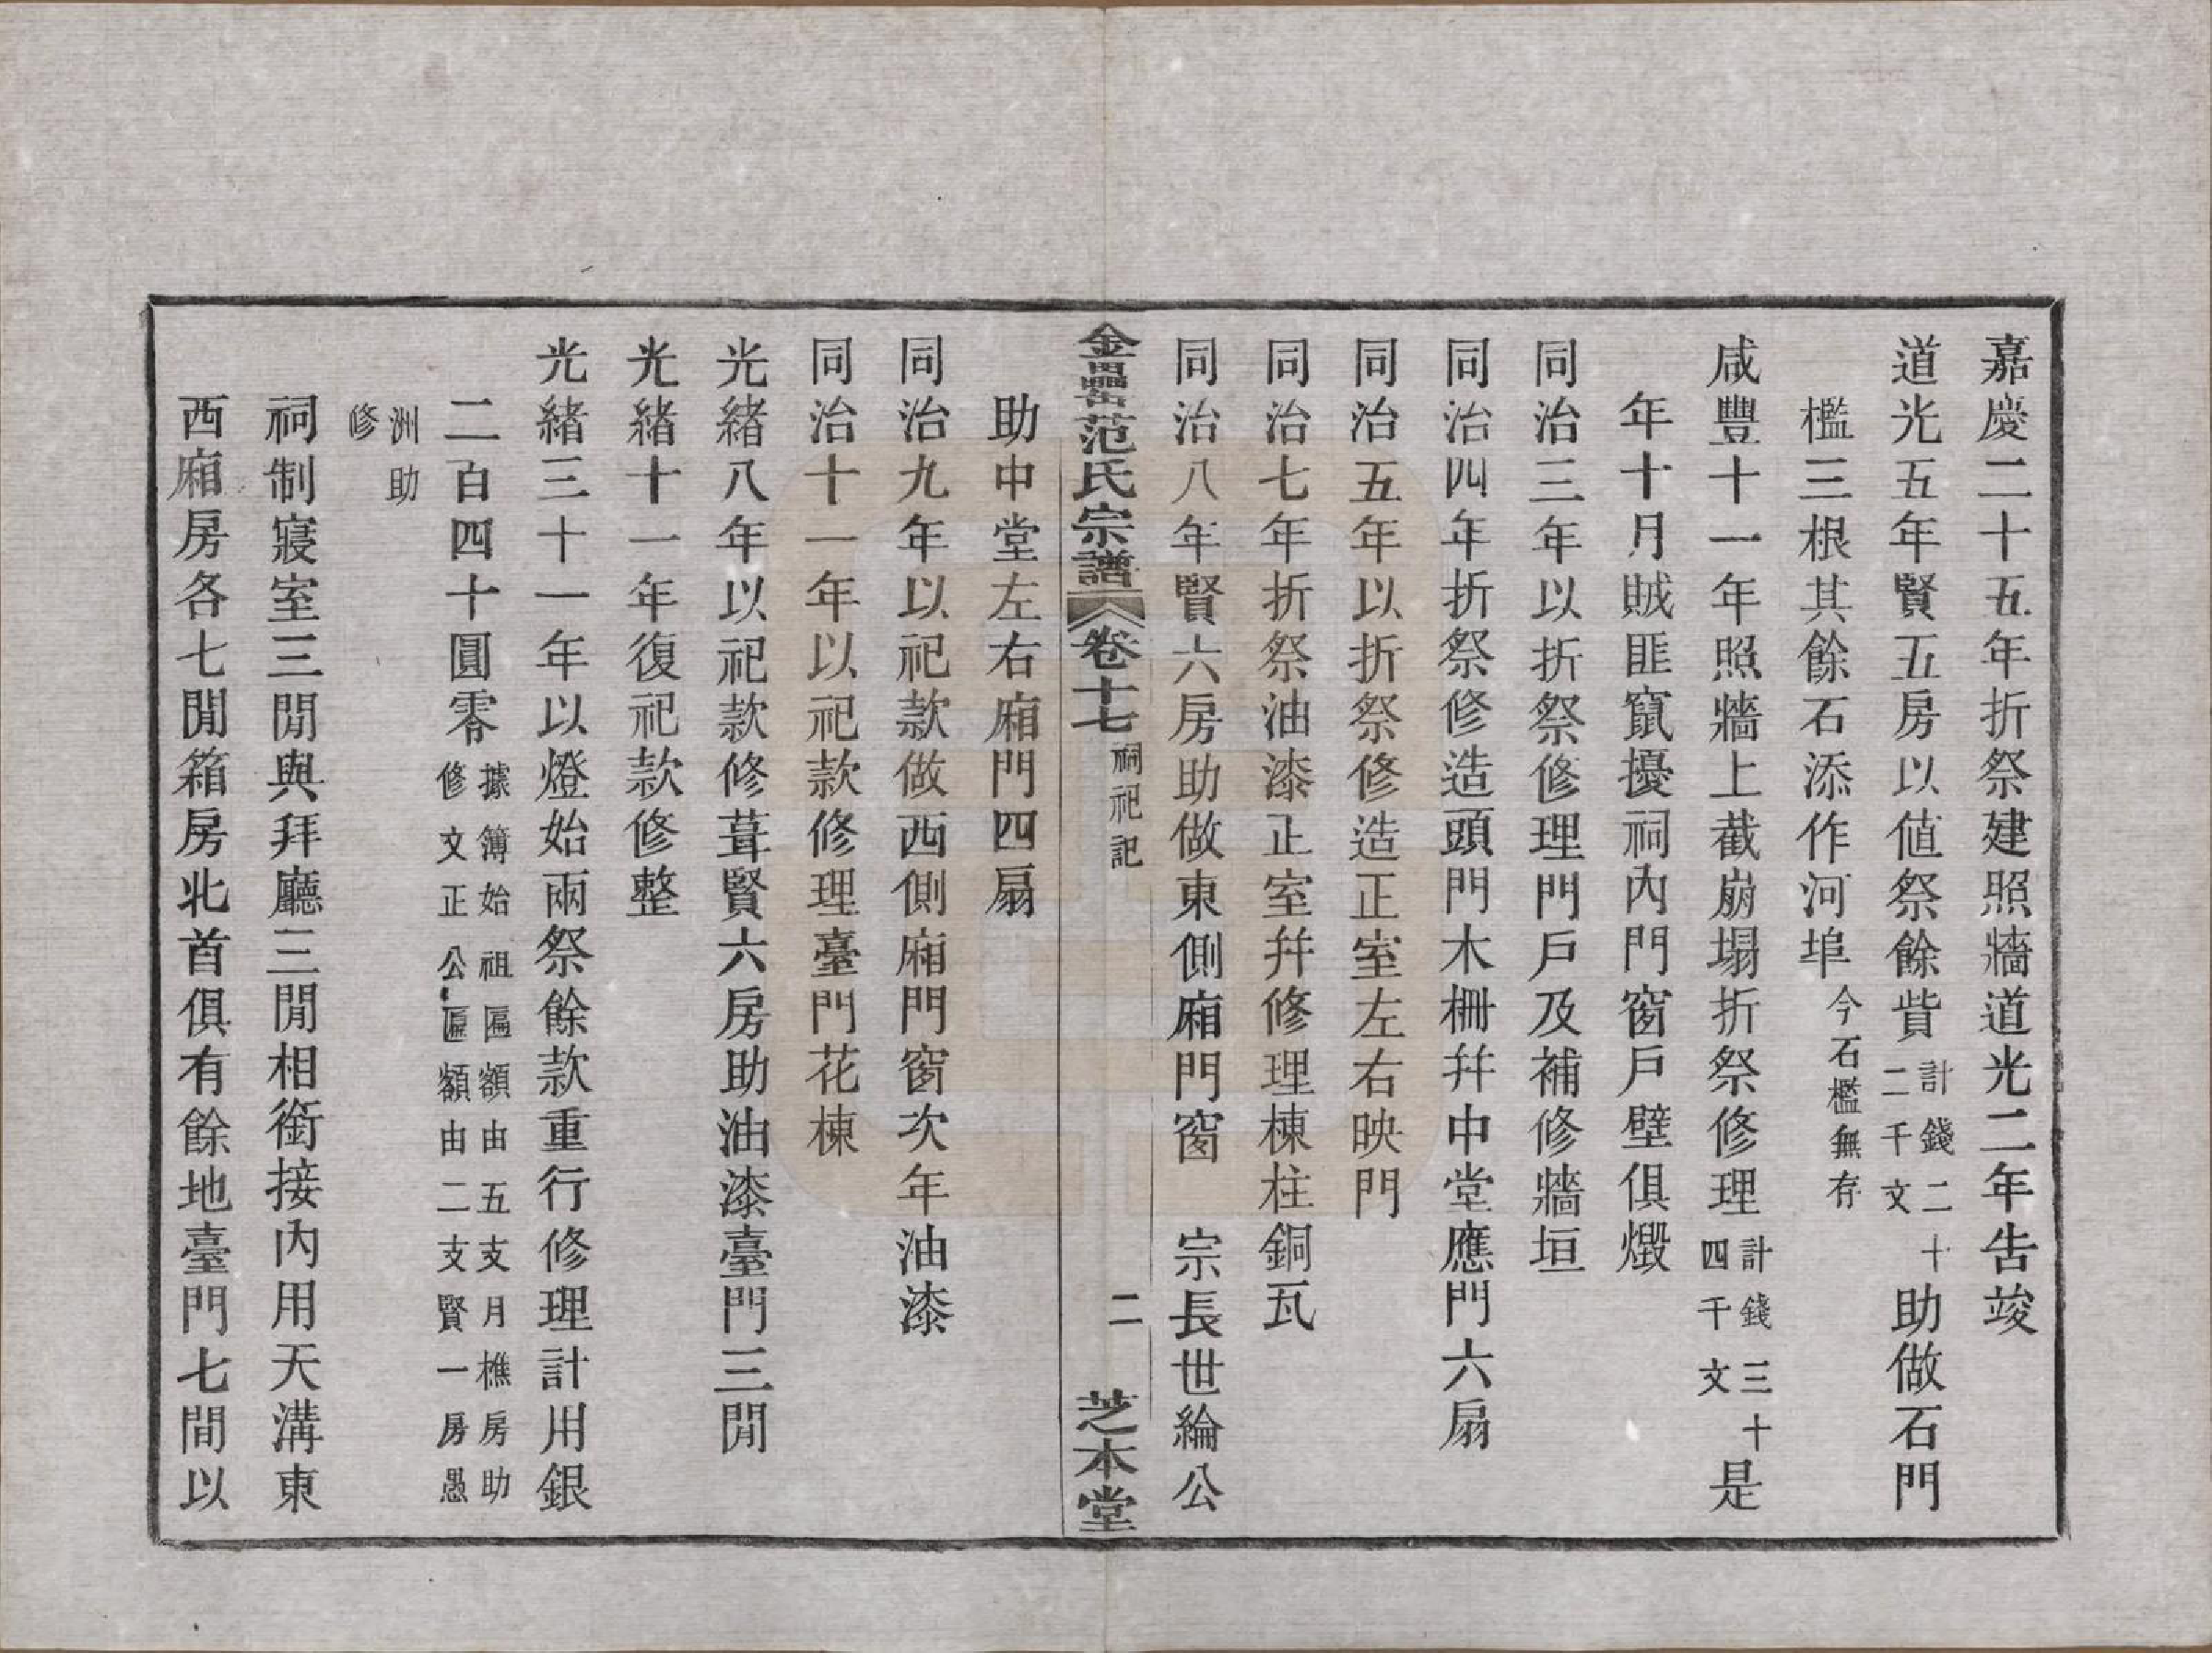 嘉慶二十五年折祭建照牆道光二年告竣
道光五年賢五房以値祭餘貲計錢二十二千文助做石門
檻三根其餘石添作河埠今石檻無存
咸豐十一年照牆上截崩塌折祭修理計錢三十四千文是
年十月賊匪竄擾祠內門窗戶壁俱燬
同治三年以折祭修理門戶及補修牆垣
同治四年折祭修造頭門木柵幷中堂應門六扇
同治五年以折祭修造正室左右映門
同治七年折祭油漆正室幷修理棟柱銅瓦
同治八年賢六房助做東側廂門窗 宗長世綸公
金罍范氏宗譜 卷十七 祠祀記 二 芝本堂
助中堂左右廂門四扇
同治九年以祀款做西側廂門窗次年油漆
同治十一年以祀款修理臺門花棟
光緒八年以祀款修葺賢六房助油漆臺門三閒
光緒十一年復祀款修整
光緒三十一年以燈始兩祭餘款重行修理計用銀
二百四十圓零據簿始祖匾額由五支月樵房助修文正公匾額由二支賢一房愚
洲助修
祠制寢室三閒與拜廳三閒相銜接內用天溝東
西廂房各七閒箱房北首俱有餘地臺門七間以